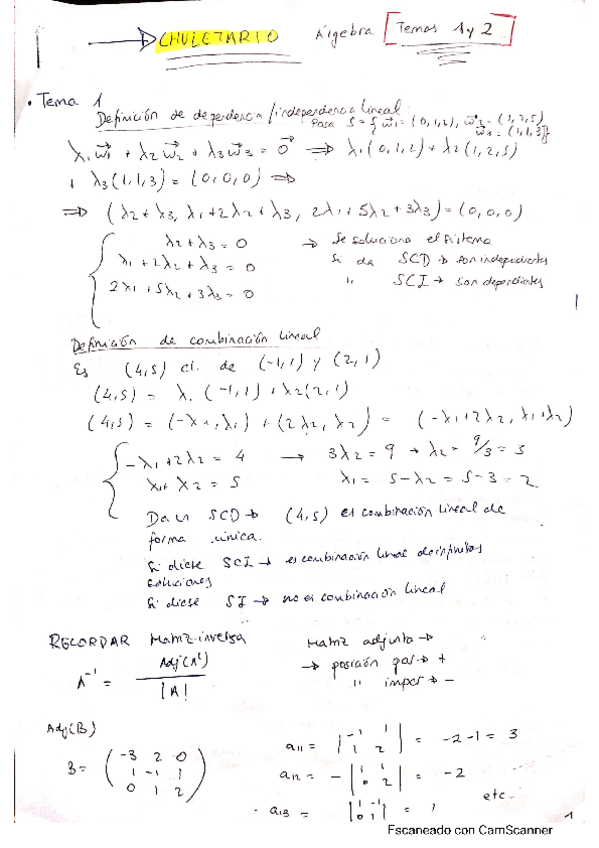 CHULETARIO Álgebra Temas 1 y 2
• Tema 1
Definición de dependencia/independencia lineal
Para S = { w⃗1 = (0,1,2), w⃗2 = (1,2,5)
w⃗3 = (1,1,3)}
λ1w⃗1 + λ2w⃗2 + λ3w⃗3 = 0⃗ ⇒ λ1(0,1,2) + λ2(1,2,5)
+ λ3(1,1,3) = (0,0,0) ⇒
⇒ (λ2+λ3, λ1+2λ2+λ3, 2λ1+5λ2+3λ3) = (0,0,0)
λ2+λ3 = 0 → Se soluciona el sistema
λ1+2λ2+λ3 = 0 Si da SCD → son independientes
2λ1+5λ2+3λ3 = 0 " SCI → son dependientes
Definición de combinación lineal
Es (4,5) cl. de (-1,1) y (2,1)
(4,5) = λ1(-1,1) + λ2(2,1)
(4,5) = (-λ1,λ1) + (2λ2,λ2) = (-λ1+2λ2, λ1+λ2)
-λ1+2λ2 = 4 → 3λ2 = 9 → λ2 = 9/3 = 3
λ1+λ2 = 5 λ1 = 5-λ2 = 5-3 = 2
Da un SCD → (4,5) es combinación lineal de
forma única.
Si diese SCI → es combinación lineal de infinitas
soluciones
Si diese SI → no es combinación lineal
RECORDAR Matriz inversa Matriz adjunta →
A⁻¹ = Adj(Aᵗ) / |A| → posición par → +
" impar → -
Adj(B)
B = (-3 2 0 a11 = |-1 1| = -2-1 = 3
1 -1 1 |1 2|
0 1 2) a12 = -|1 1| = -2
|0 2|
a13 = |1 -1| = 1 etc
|0 1|
1
Escaneado con CamScanner